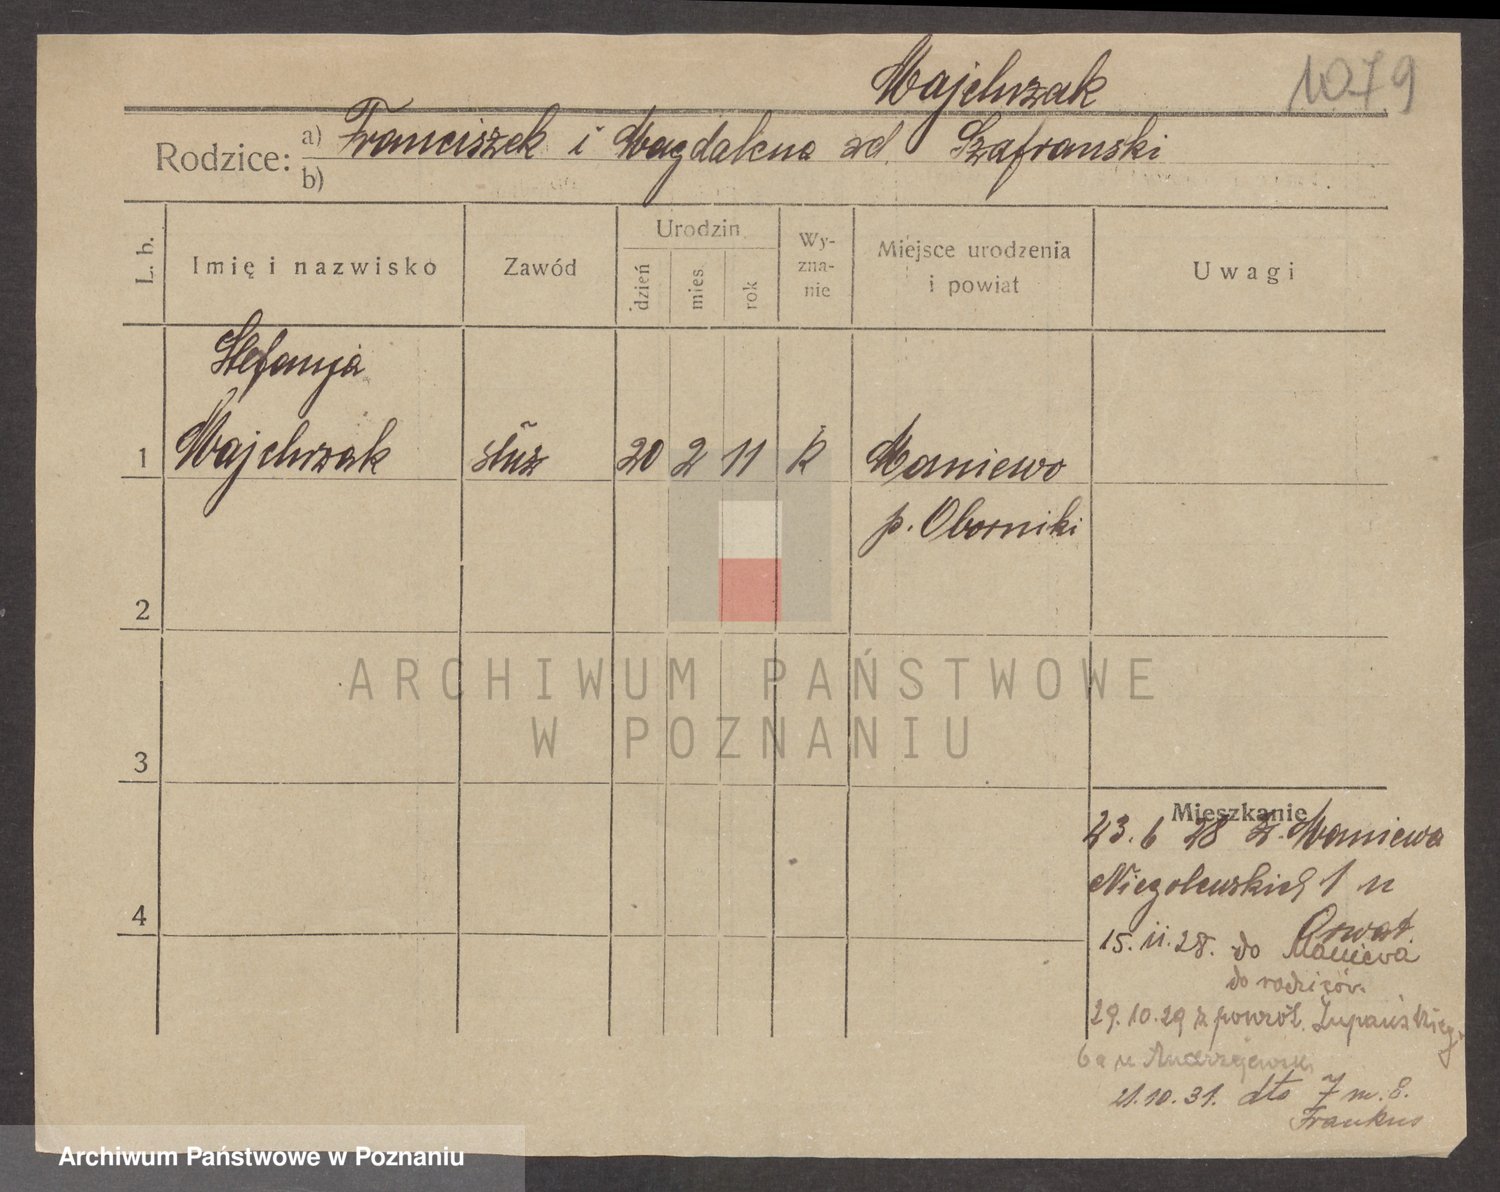 Majchrzak
1079
Rodzice: a) Franciszek i Magdalena zd. Szafranski
b)
L. b. Imię i nazwisko Zawód Urodzin dzień mies. rok Wy-zna-nie Miejsce urodzenia i powiat Uwagi
Stefanja
1 Majchrzak służ 20 2 11 k Maniewo
p. Oborniki
2
ARCHIWUM PAŃSTWOWE
W POZNANIU
3
Mieszkanie
23.6 28 z. Maniewa
Niegolewskich 1 u
4
15.11.28. do Maniewa
do rodziców.
29.10.29 z powrót. Żupańskieg
6a u Andrzejewsk.
21.10.31. dto 7 m. 8.
Frankus
Archiwum Państwowe w Poznaniu